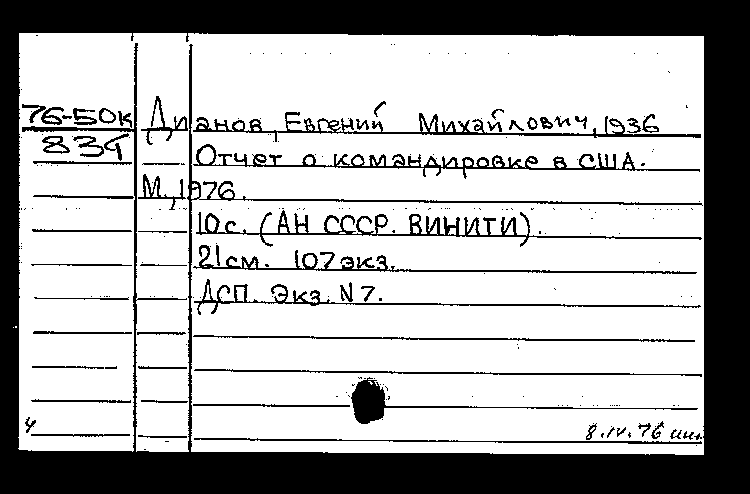 76-50к Дианов, Евгений Михайлович, 1936
834 Отчет о командировке в США.
М., 1976.
10с. (АН СССР. ВИНИТИ).
21см. 107экз.
ДСП. Экз. N7.
4 8.IV.76